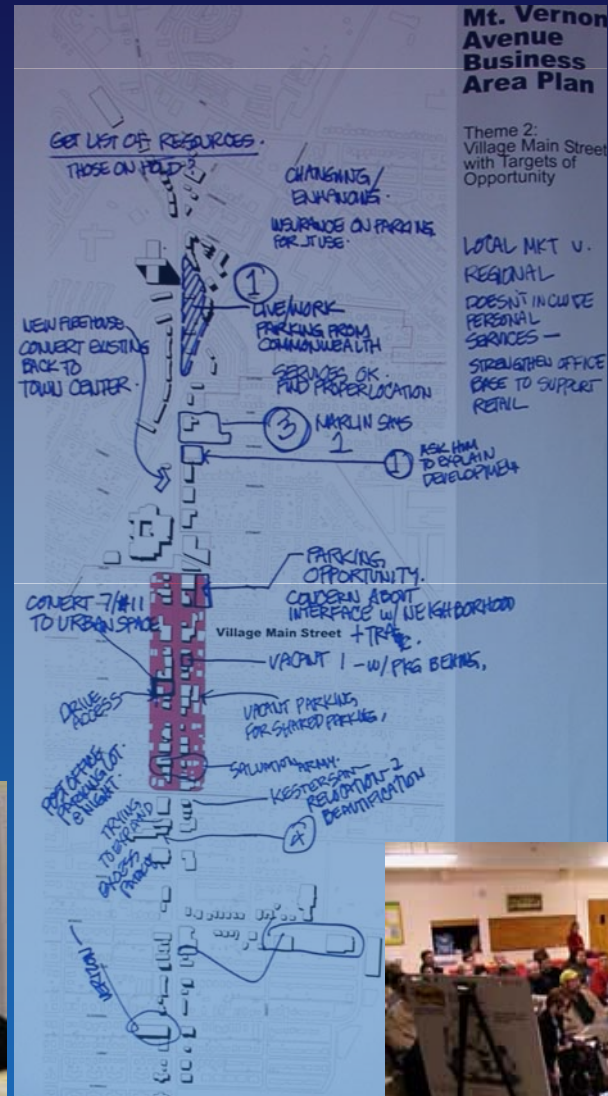 Mt. Vernon
Avenue
Business
Area Plan
Theme 2:
Village Main Street
with Targets of
Opportunity
GET LIST OF RESOURCES.
THOSE ON HOLD?
CHANGING/
ENHANCING.
INSURANCE ON PARKING
FOR JT USE.
LOCAL MKT V.
REGIONAL
DOESN'T INCLUDE
PERSONAL
SERVICES —
STRENGTHEN OFFICE
BASE TO SUPPORT
RETAIL
1
LIVE/WORK
PARKING FROM
COMMONWEALTH
SERVICES OK.
FIND PROPER LOCATION
NEW FIREHOUSE
CONVERT EXISTING
BACK TO
TOWN CENTER.
3
MARLIN SAYS
1
1
ASK HIM
TO EXPLAIN
DEVELOPMENT
PARKING
OPPORTUNITY.
CONCERN ABOUT
INTERFACE W/ NEIGHBORHOOD
CONVERT 7/#11
TO URBAN SPACE
Village Main Street
VACANT 1 - W/ PKG BEHIND,
DRIVE
ACCESS
VACANT PARKING
FOR SHARED PARKING,
POST OFFICE
PARKING LOT.
@ NIGHT.
SALVATION ARMY.
RELOCATION - 2
BEAUTIFICATION
TRYING
TO EXPAND
EXCESS
4
VERIZON